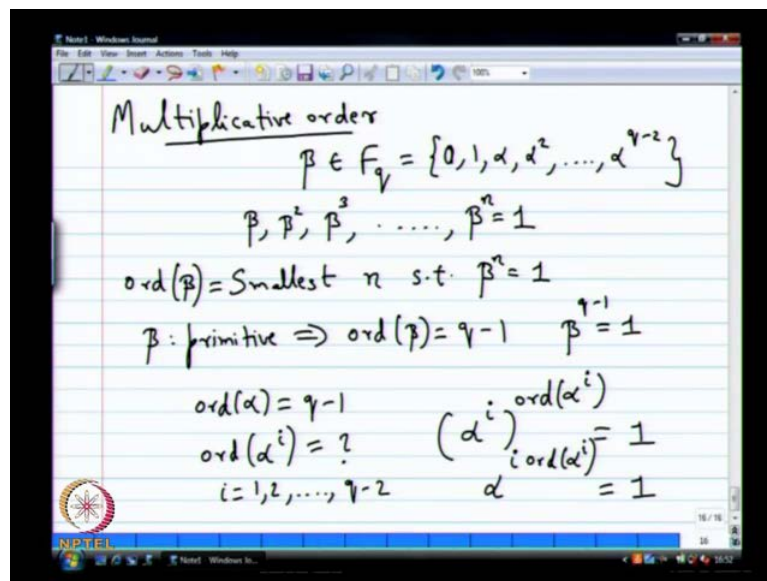 Note1 - Windows Journal
File Edit View Insert Actions Tools Help
100%
Multiplicative order
β ∈ F_q = {0, 1, α, α², ...., α^{q-2}}
β, β², β³, ....., βⁿ = 1
ord(β) = Smallest n s.t. βⁿ = 1
β : primitive ⇒ ord(β) = q-1 β^{q-1} = 1
ord(α) = q-1 (α^i)^{ord(α^i)} = 1
ord(α^i) = ? α^{i ord(α^i)} = 1
i = 1, 2, ...., q-2
16 / 16
16
NPTEL
Note1 - Windows Jo...
16:52